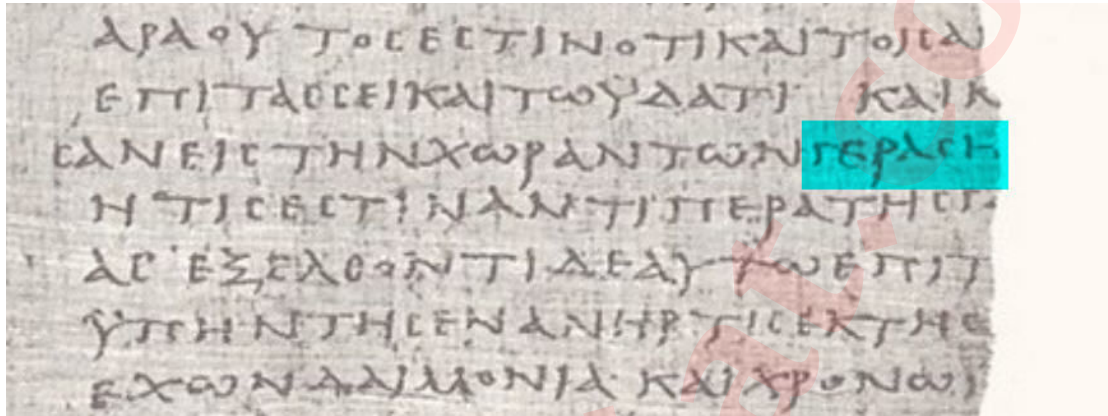 ΑΡΑΟΥΤΟϹΕϹΤΙΝΟΤΙΚΑΙΤΟΙϹΑ
ΕΠΙΤΑϹϹΕΙΚΑΙΤΩΥΔΑΤΙ ΚΑΙΚ
ϹΑΝΕΙϹΤΗΝΧΩΡΑΝΤΩΝΓΕΡΑϹΗ
ΗΤΙϹΕϹΤΙΝΑΝΤΙΠΕΡΑΤΗϹΓ
ΑϹ ΕΞΕΛΘΟΝΤΙΔΕΑΥΤΩΕΠΙΤ
ΥΠΗΝΤΗϹΕΝΑΝΗΡΤΙϹΕΚΤΗϹ
ΕΧΩΝΔΑΙΜΟΝΙΑ ΚΑΙΧΡΟΝΩΙ